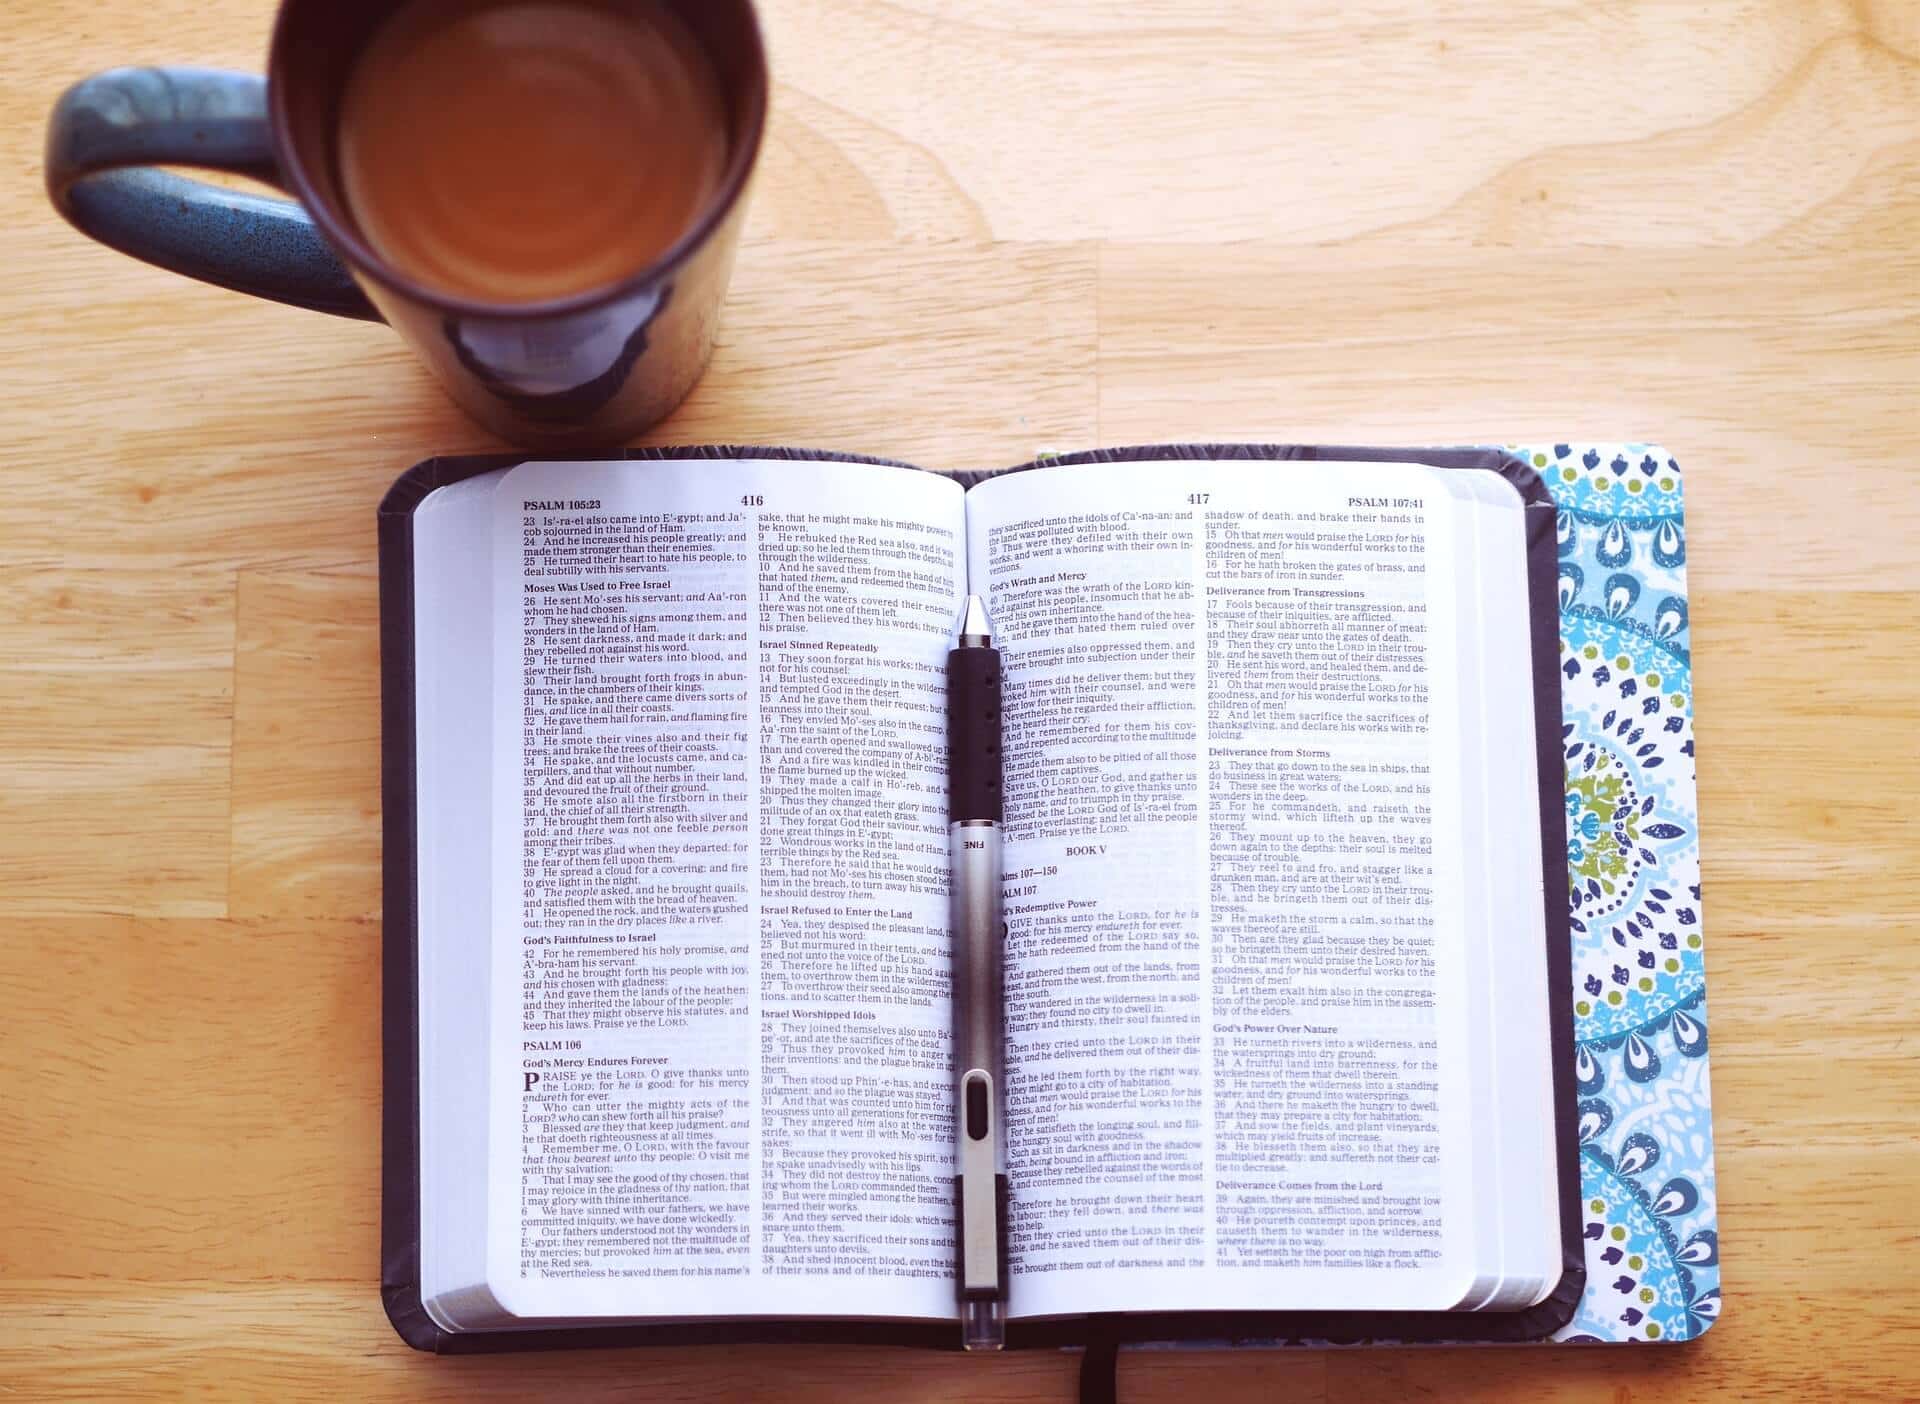 PSALM 105:23
416
23 Is'-ra-el also came into E'-gypt; and Ja'-
cob sojourned in the land of Ham.
24 And he increased his people greatly; and
made them stronger than their enemies.
25 He turned their heart to hate his people, to
deal subtilly with his servants.
Moses Was Used to Free Israel
26 He sent Mo'-ses his servant; and Aa'-ron
whom he had chosen.
27 They shewed his signs among them, and
wonders in the land of Ham.
28 He sent darkness, and made it dark; and
they rebelled not against his word.
29 He turned their waters into blood, and
slew their fish.
30 Their land brought forth frogs in abun-
dance, in the chambers of their kings.
31 He spake, and there came divers sorts of
flies, and lice in all their coasts.
32 He gave them hail for rain, and flaming fire
in their land.
33 He smote their vines also and their fig
trees; and brake the trees of their coasts.
34 He spake, and the locusts came, and ca-
terpillers, and that without number,
35 And did eat up all the herbs in their land,
and devoured the fruit of their ground.
36 He smote also all the firstborn in their
land, the chief of all their strength.
37 He brought them forth also with silver and
gold: and there was not one feeble person
among their tribes.
38 E'-gypt was glad when they departed: for
the fear of them fell upon them.
39 He spread a cloud for a covering; and fire
to give light in the night.
40 The people asked, and he brought quails,
and satisfied them with the bread of heaven.
41 He opened the rock, and the waters gushed
out; they ran in the dry places like a river.
God's Faithfulness to Israel
42 For he remembered his holy promise, and
A'-bra-ham his servant.
43 And he brought forth his people with joy,
and his chosen with gladness:
44 And gave them the lands of the heathen:
and they inherited the labour of the people;
45 That they might observe his statutes, and
keep his laws. Praise ye the LORD.
PSALM 106
God's Mercy Endures Forever
PRAISE ye the LORD. O give thanks unto
the LORD; for he is good: for his mercy
endureth for ever.
2 Who can utter the mighty acts of the
LORD? who can shew forth all his praise?
3 Blessed are they that keep judgment, and
he that doeth righteousness at all times.
4 Remember me, O LORD, with the favour
that thou bearest unto thy people: O visit me
with thy salvation;
5 That I may see the good of thy chosen, that
I may rejoice in the gladness of thy nation, that
I may glory with thine inheritance.
6 We have sinned with our fathers, we have
committed iniquity, we have done wickedly.
7 Our fathers understood not thy wonders in
E'-gypt; they remembered not the multitude of
thy mercies; but provoked him at the sea, even
at the Red sea.
8 Nevertheless he saved them for his name's
sake, that he might make his mighty power to
be known.
9 He rebuked the Red sea also, and it was
dried up: so he led them through the depths, as
through the wilderness.
10 And he saved them from the hand of him
that hated them, and redeemed them from the
hand of the enemy.
11 And the waters covered their enemies:
there was not one of them left.
12 Then believed they his words; they sang
his praise.
Israel Sinned Repeatedly
13 They soon forgat his works; they
not for his counsel:
14 But lusted exceedingly in the
and tempted God in the desert.
15 And he gave them their request; but
leanness into their soul.
16 They envied Mo'-ses also in the camp,
Aa'-ron the saint of the LORD.
17 The earth opened and swallowed up
than and covered the company of
18 And a fire was kindled in their
the flame burned up the wicked.
19 They made a calf in Ho'-reb, and
shipped the molten image.
20 Thus they changed their glory into the
militude of an ox that eateth grass.
21 They forgat God their saviour, which
done great things in E'-gypt;
22 Wondrous works in the land of Ham,
terrible things by the Red sea.
23 Therefore he said that he would
them, had not Mo'-ses his chosen stood
him in the breach, to turn away his wrath,
he should destroy them.
Israel Refused to Enter the Land
24 Yea, they despised the pleasant land,
believed not his word:
25 But murmured in their tents, and
ened not unto the voice of the LORD.
26 Therefore he lifted up his hand
them, to overthrow them in the wilderness:
27 To overthrow their seed also among the
tions, and to scatter them in the lands.
Israel Worshipped Idols
28 They joined themselves also unto
pe'-or, and ate the sacrifices of the dead.
29 Thus they provoked him to anger
their inventions: and the plague brake in
them.
30 Then stood up Phin'-e-has, and
judgment: and so the plague was stayed.
31 And that was counted unto him for
teousness unto all generations for
32 They angered him also at the
strife, so that it went ill with Mo'-ses for
sakes:
33 Because they provoked his spirit, so
he spake unadvisedly with his lips.
34 They did not destroy the nations,
ing whom the LORD commanded them:
35 But were mingled among the heathen,
learned their works.
36 And they served their idols: which
snare unto them.
37 Yea, they sacrificed their sons and
daughters unto devils,
38 And shed innocent blood, even the
of their sons and of their daughters,
417
PSALM 107:41
they sacrificed unto the idols of Ca'-na-an: and
the land was polluted with blood.
39 Thus were they defiled with their own
works, and went a whoring with their own in-
ventions.
God's Wrath and Mercy
40 Therefore was the wrath of the LORD kin-
against his people, insomuch that he ab-
his own inheritance.
And he gave them into the hand of the hea-
and they that hated them ruled over
Their enemies also oppressed them, and
were brought into subjection under their
Many times did he deliver them; but they
him with their counsel, and were
low for their iniquity.
Nevertheless he regarded their affliction,
he heard their cry:
And he remembered for them his cov-
and repented according to the multitude
mercies.
He made them also to be pitied of all those
carried them captives.
Save us, O LORD our God, and gather us
among the heathen, to give thanks unto
holy name, and to triumph in thy praise.
Blessed be the LORD God of Is'-ra-el from
to everlasting: and let all the people
A'-men. Praise ye the LORD.
BOOK V
107—150
107
Redemptive Power
GIVE thanks unto the LORD, for he is
good: for his mercy endureth for ever.
Let the redeemed of the LORD say so,
he hath redeemed from the hand of the
And gathered them out of the lands, from
east, and from the west, from the north, and
the south.
They wandered in the wilderness in a soli-
way; they found no city to dwell in.
Hungry and thirsty, their soul fainted in
Then they cried unto the LORD in their
and he delivered them out of their dis-
And he led them forth by the right way,
they might go to a city of habitation.
Oh that men would praise the LORD for his
and for his wonderful works to the
of men!
For he satisfieth the longing soul, and fill-
the hungry soul with goodness.
Such as sit in darkness and in the shadow
death, being bound in affliction and iron;
Because they rebelled against the words of
and contemned the counsel of the most
Therefore he brought down their heart
labour; they fell down, and there was
to help.
Then they cried unto the LORD in their
and he saved them out of their dis-
He brought them out of darkness and the
shadow of death, and brake their bands in
sunder.
15 Oh that men would praise the LORD for his
goodness, and for his wonderful works to the
children of men!
16 For he hath broken the gates of brass, and
cut the bars of iron in sunder.
Deliverance from Transgressions
17 Fools because of their transgression, and
because of their iniquities, are afflicted.
18 Their soul abhorreth all manner of meat;
and they draw near unto the gates of death.
19 Then they cry unto the LORD in their trou-
ble, and he saveth them out of their distresses.
20 He sent his word, and healed them, and de-
livered them from their destructions.
21 Oh that men would praise the LORD for his
goodness, and for his wonderful works to the
children of men!
22 And let them sacrifice the sacrifices of
thanksgiving, and declare his works with re-
joicing.
Deliverance from Storms
23 They that go down to the sea in ships, that
do business in great waters;
24 These see the works of the LORD, and his
wonders in the deep.
25 For he commandeth, and raiseth the
stormy wind, which lifteth up the waves
thereof.
26 They mount up to the heaven, they go
down again to the depths: their soul is melted
because of trouble.
27 They reel to and fro, and stagger like a
drunken man, and are at their wit's end.
28 Then they cry unto the LORD in their trou-
ble, and he bringeth them out of their dis-
tresses.
29 He maketh the storm a calm, so that the
waves thereof are still.
30 Then are they glad because they be quiet;
so he bringeth them unto their desired haven.
31 Oh that men would praise the LORD for his
goodness, and for his wonderful works to the
children of men!
32 Let them exalt him also in the congrega-
tion of the people, and praise him in the assem-
bly of the elders.
God's Power Over Nature
33 He turneth rivers into a wilderness, and
the watersprings into dry ground;
34 A fruitful land into barrenness, for the
wickedness of them that dwell therein.
35 He turneth the wilderness into a standing
water, and dry ground into watersprings.
36 And there he maketh the hungry to dwell,
that they may prepare a city for habitation;
37 And sow the fields, and plant vineyards,
which may yield fruits of increase.
38 He blesseth them also, so that they are
multiplied greatly; and suffereth not their cat-
tle to decrease.
Deliverance Comes from the Lord
39 Again, they are minished and brought low
through oppression, affliction, and sorrow.
40 He poureth contempt upon princes, and
causeth them to wander in the wilderness,
where there is no way.
41 Yet setteth he the poor on high from afflic-
tion, and maketh him families like a flock.
FINE